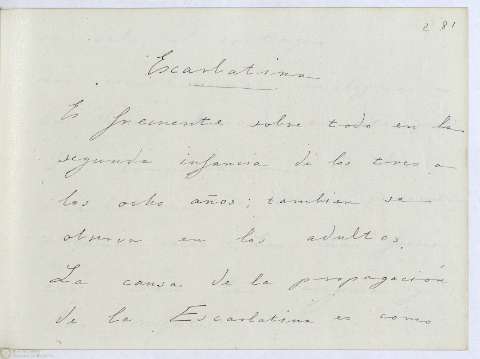 281
Escarlatina
Es frecuente sobre todo en la
segunda infancia de los tres a
los ocho años; tambien se
observa en los adultos.
La causa de la propagación
de la Escarlatina es como